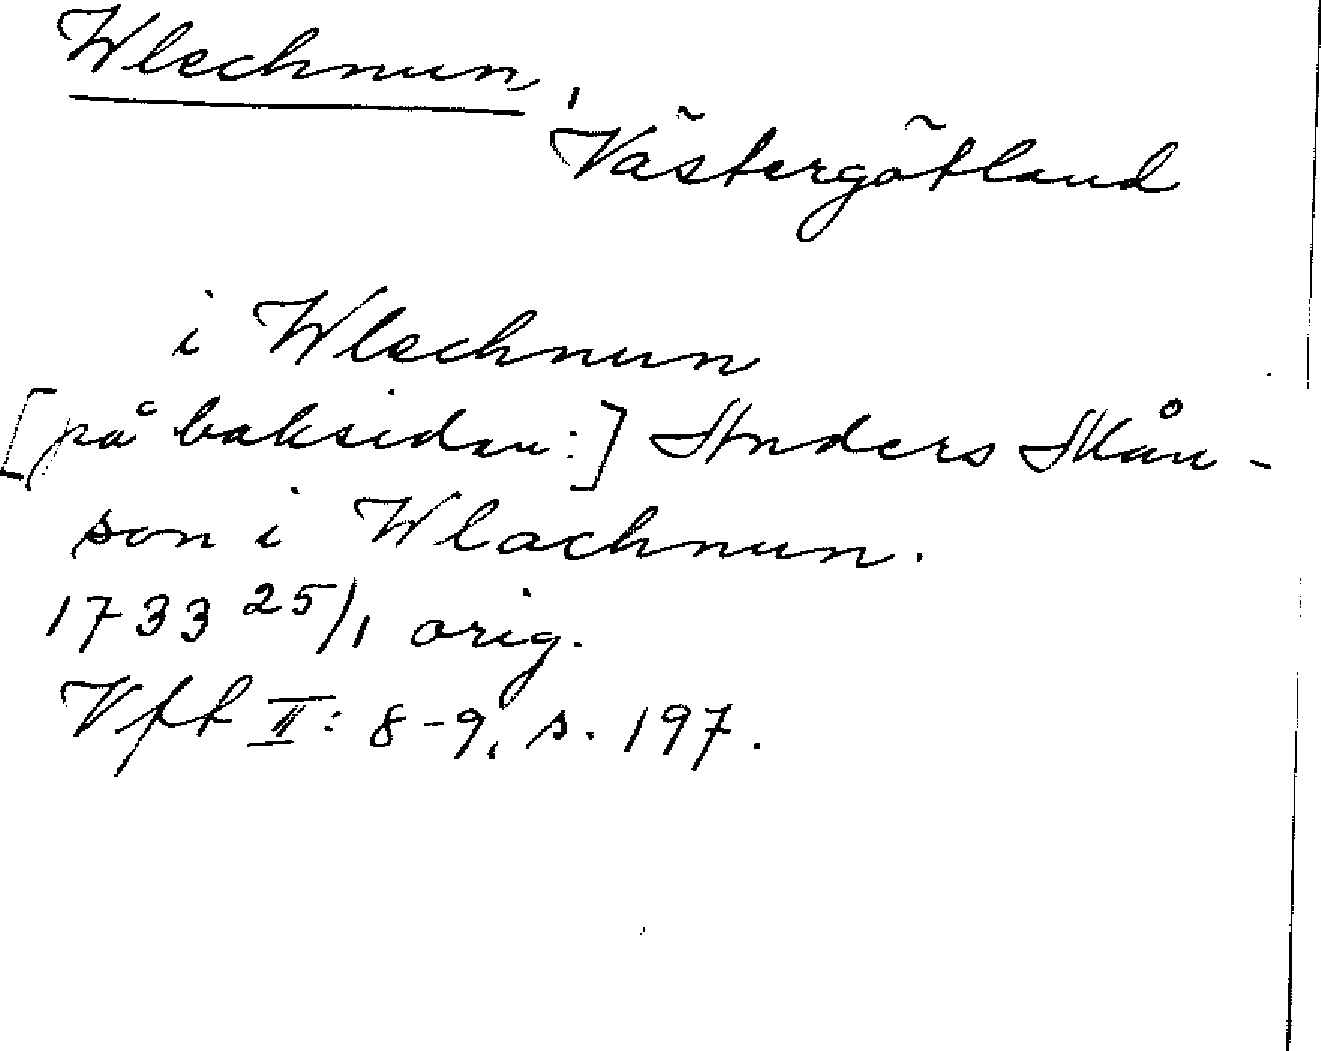 Wlechnun,
Västergötland
i Wlechnun
[på baksidan:] Anders Skån-
son i Wlachnun.
1733 25/1 orig.
Vft II: 8-9, s. 197.